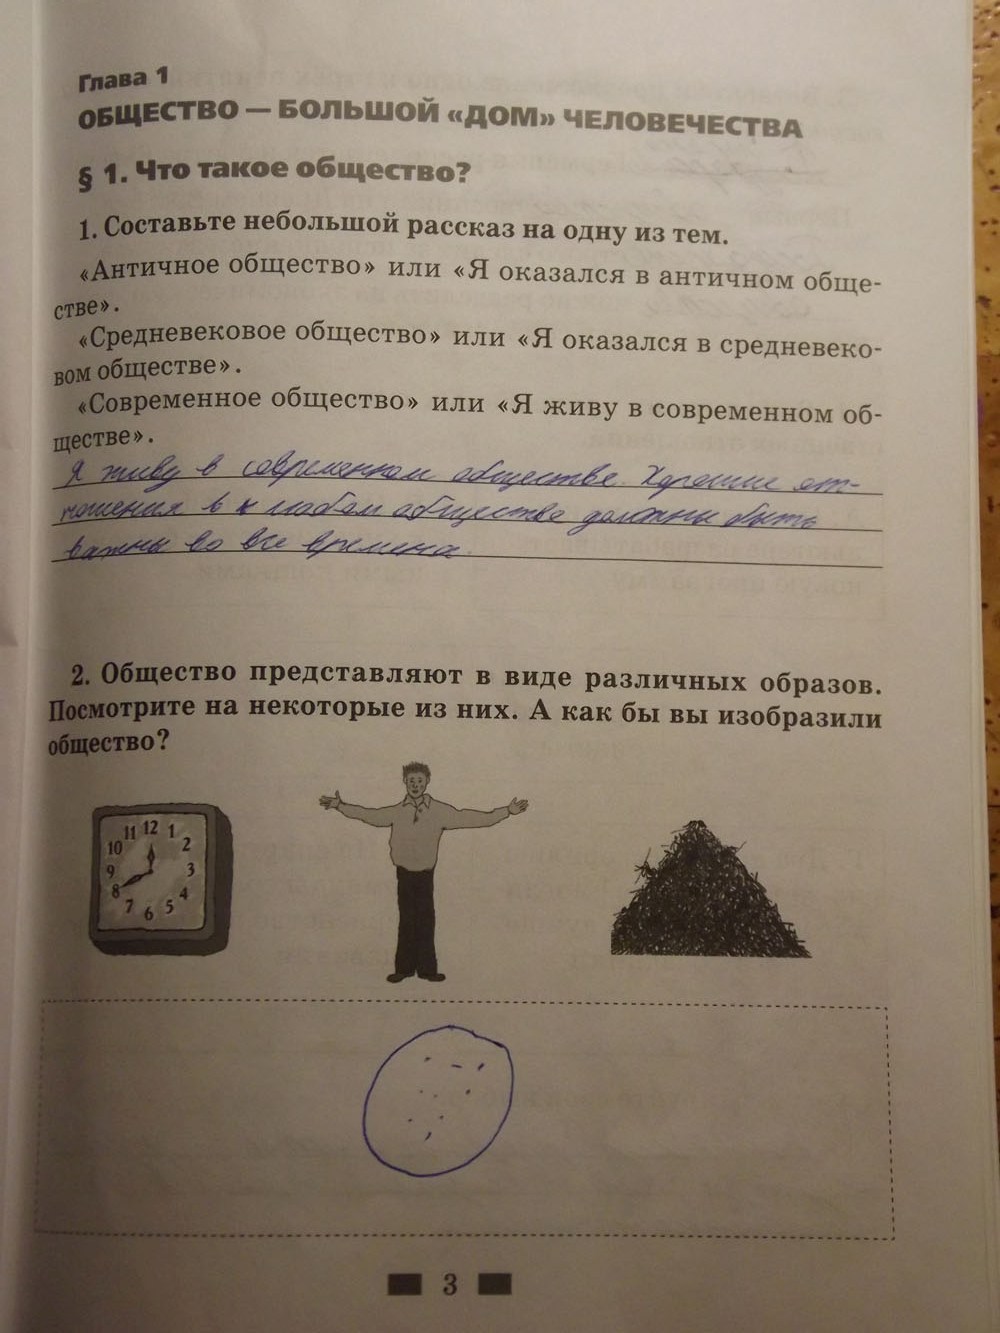 Глава 1
ОБЩЕСТВО — БОЛЬШОЙ «ДОМ» ЧЕЛОВЕЧЕСТВА
§ 1. Что такое общество?
1. Составьте небольшой рассказ на одну из тем.
«Античное общество» или «Я оказался в античном обще-
стве».
«Средневековое общество» или «Я оказался в средневеко-
вом обществе».
«Современное общество» или «Я живу в современном об-
ществе».
Я живу в современном обществе. Хорошие от-
ношения в к любом обществе должны быть
важны во все времена.
2. Общество представляют в виде различных образов.
Посмотрите на некоторые из них. А как бы вы изобразили
общество?
11 12 1
10 2
9 3
8 4
7 6 5
3